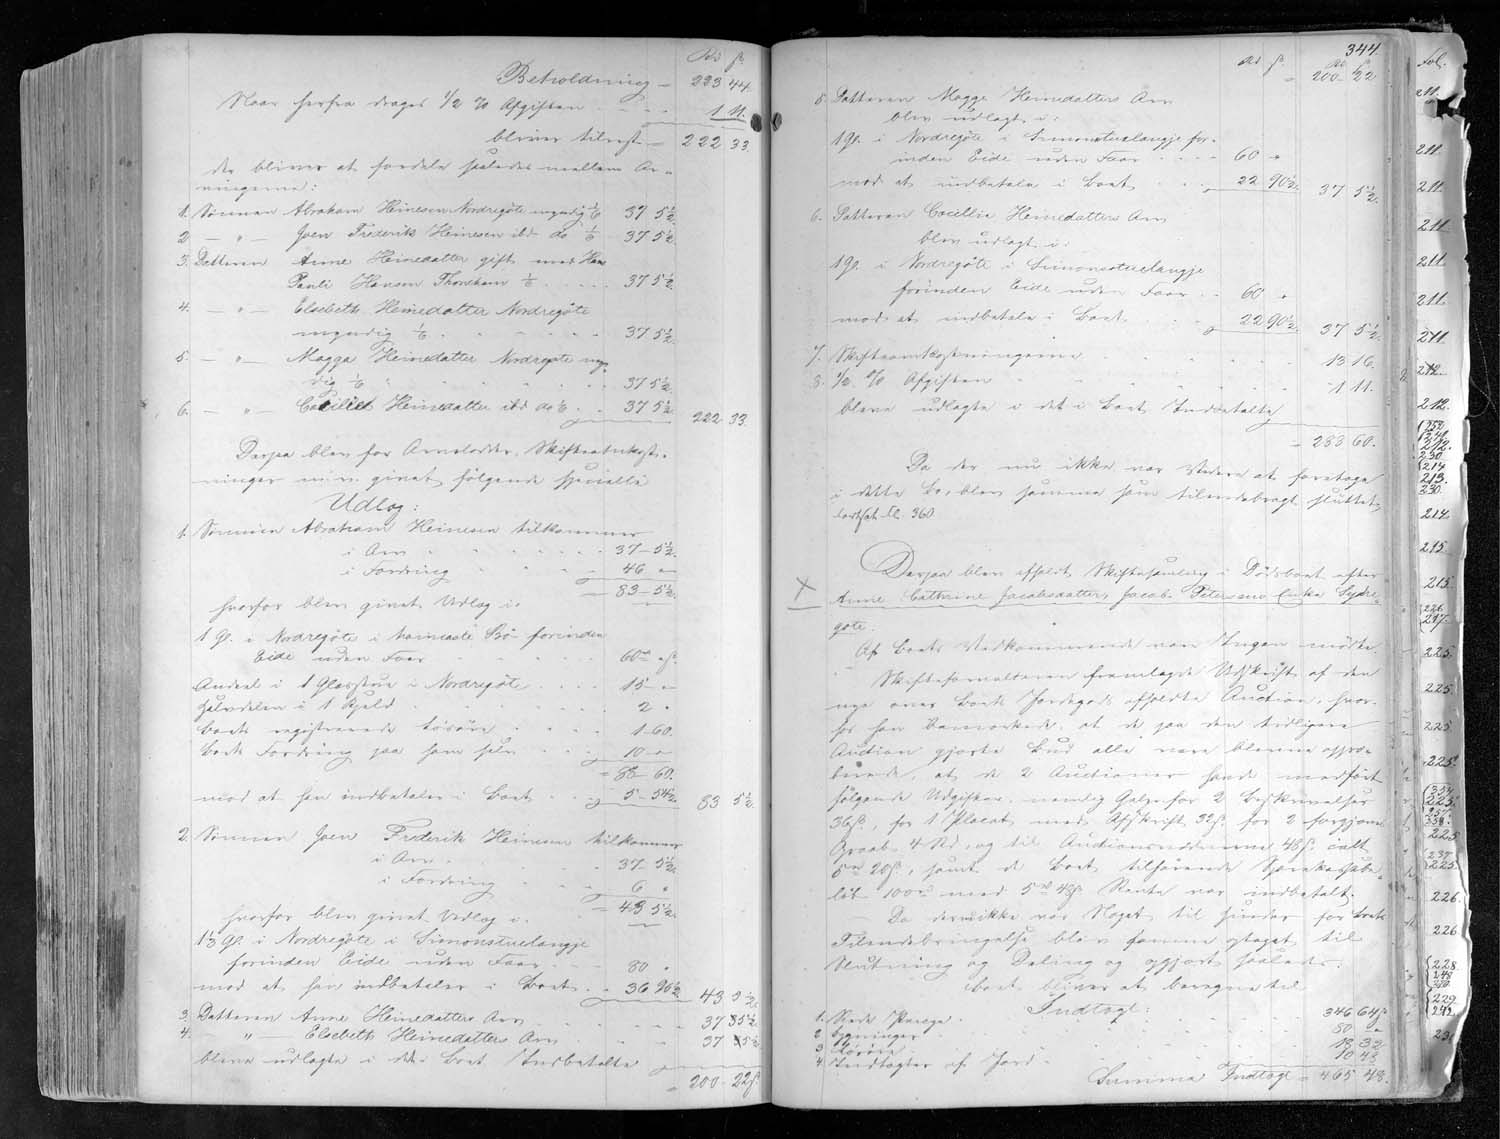 Rd ß.
Beholdning - 223 44.
Naar herfra drages 1/2 % Afgiften - - - 1 11.
bliver tilrest - 222 33.
der bliver at fordele saaledes mellem Ar-
vingerne:
1. Sønnen Abraham Heinesen Nordregøte myndig 1/6 37 5 1/2.
2. - " - Joen Frederik Heinesen ibd do 1/6 - 37 5 1/2.
3. Datteren Anne Heinedatter gift med Hans
Pauli Hansen Thorshavn 1/6 . . . . 37 5 1/2.
4. - " - Elsebeth Heinedatter Nordregøte
myndig 1/6 . . . . 37 5 1/2.
5. - " - Magga Heinedatter Nordregøte myn-
dig 1/6 . . . . 37 5 1/2.
6. - " - Cecillie Heinedatter ibd do 1/6 . . 37 5 1/2. 222 33.
Derpaa blev for Arvelodder, Skifteomkost-
ninger m.m. givet følgende specielle
Udlog:
1. Sønnen Abraham Heinesen tilkommer
i Arv . . . . 37 - 5 1/2.
i Fordring . . . 46 "
= 83 - 5 1/2.
hvorfor blev givet Udlog i:
1 Gl. i Nordregøte i Bø forinden
Eide uden Faar . . . . 60 rd " ß.
Andeel i 1 Glasstue i Nordregøte . . . . 15 - "
Halvdelen i 1 Kjeld . . . . 2 "
Boets registrerede Løsøre . . . . 1 - 60.
Boets Fordring paa ham selv . . . 10 - "
= 88 - 60.
mod at han indbetaler i Boet . . . 5 - 54 1/2. 83 5 1/2.
2. Sønnen Joen Frederik Heinesen tilkommer
i Arv . . . . 37 - 5 1/2.
i Fordring . . . 6 "
= 43 5 1/2.
hvorfor blev givet Udlog i:
1 1/3 Gl. i Nordregøte i Simonstuelangje
forinden Eide uden Faar . . . 80 "
mod at han indbetaler i Boet . . 36 90 1/2. 43 5 1/2.
3. Datteren Anne Heinedatters Arv . . . . 37 5 1/2.
4. " - Elsebeth Heinedatters Arv . . . . 37 5 1/2.
bleve udlagte i det i Boet Indbetalte
= 200 - 22 ß.
344.
Rd ß. Rd ß.
= 200 - 22
5. Datteren Magga Heinedatters Arv
blev udlagt i:
1 Gl. i Nordregøte i Simonstuelangje for-
inden Eide uden Faar . . . 60 "
mod at indbetale i Boet . . . 22 90 1/2. 37 5 1/2.
6. Datteren Cecillie Heinedatters Arv
blev udlagt i:
1 Gl. i Nordregøte i Simonstuelangje
forinden Eide uden Faar . . 60 "
mod at indbetale i Boet . . . 22 90 1/2. 37 5 1/2.
7. Skifteomkostningerne . . . . 13 16.
8. 1/2 % Afgiften . . . . 1 11.
bleve udlagte i det i Boet Indbetalte
= 283 60.
Da der nu ikke var Videre at foretage
i dette Bo, blev samme som tilendebragt sluttet
fortsat fl. 360
Derpaa blev afholdt Skiftesamling i Dødsboet efter
Anne Cathrine Jacobsdatter, Jacob Petersens Enke Sydre-
gøte.
Af Boets Vedkommende var Ingen mødte.
Skifteforvalteren fremlagde Udskrift af den
nye over Boets Jordegods afholdte Auction, hvor-
hos han bemærkede, at de paa den tidligere
Auction gjorte Bud alle vare blevne appro-
berede, at de 2 Auctioner havde medført
følgende Udgifter, nemlig Gebyr for 2 Beskrivelser
36 ß., for 1 Placat med Afskrift 32 ß. for 2 forgjæves
Opraab 4 Rd, og til Auctionsvidnerne 48 ß. ialt
5 rd 20 ß., samt de Boet tilhørende Sparekassebe-
løb 100 rd med 5 rd 48 ß. Rente var indbetalt.
Da der ikke var Noget til Hinder for Boets
Tilendebringelse blev samme optaget til
Slutning og Deling og opgjort saaledes:
Boet bliver at beregne til
Indtægt:
1. Rede Penge . . . . 346 64 ß.
2. Bygninger . . . . 80 "
3. Løsøre . . . . 18 32
4. Indtægter af Jord . . . . 10 48
Summa Indtægt = 465 48.
fol.
211.
211.
211.
211.
211.
211.
211.
212.
212.
212.
230
214
213.
230.
214.
215.
215.
226
217.
225.
225.
225.
225.
354
225.
225
237
225.
226.
226
228.
229